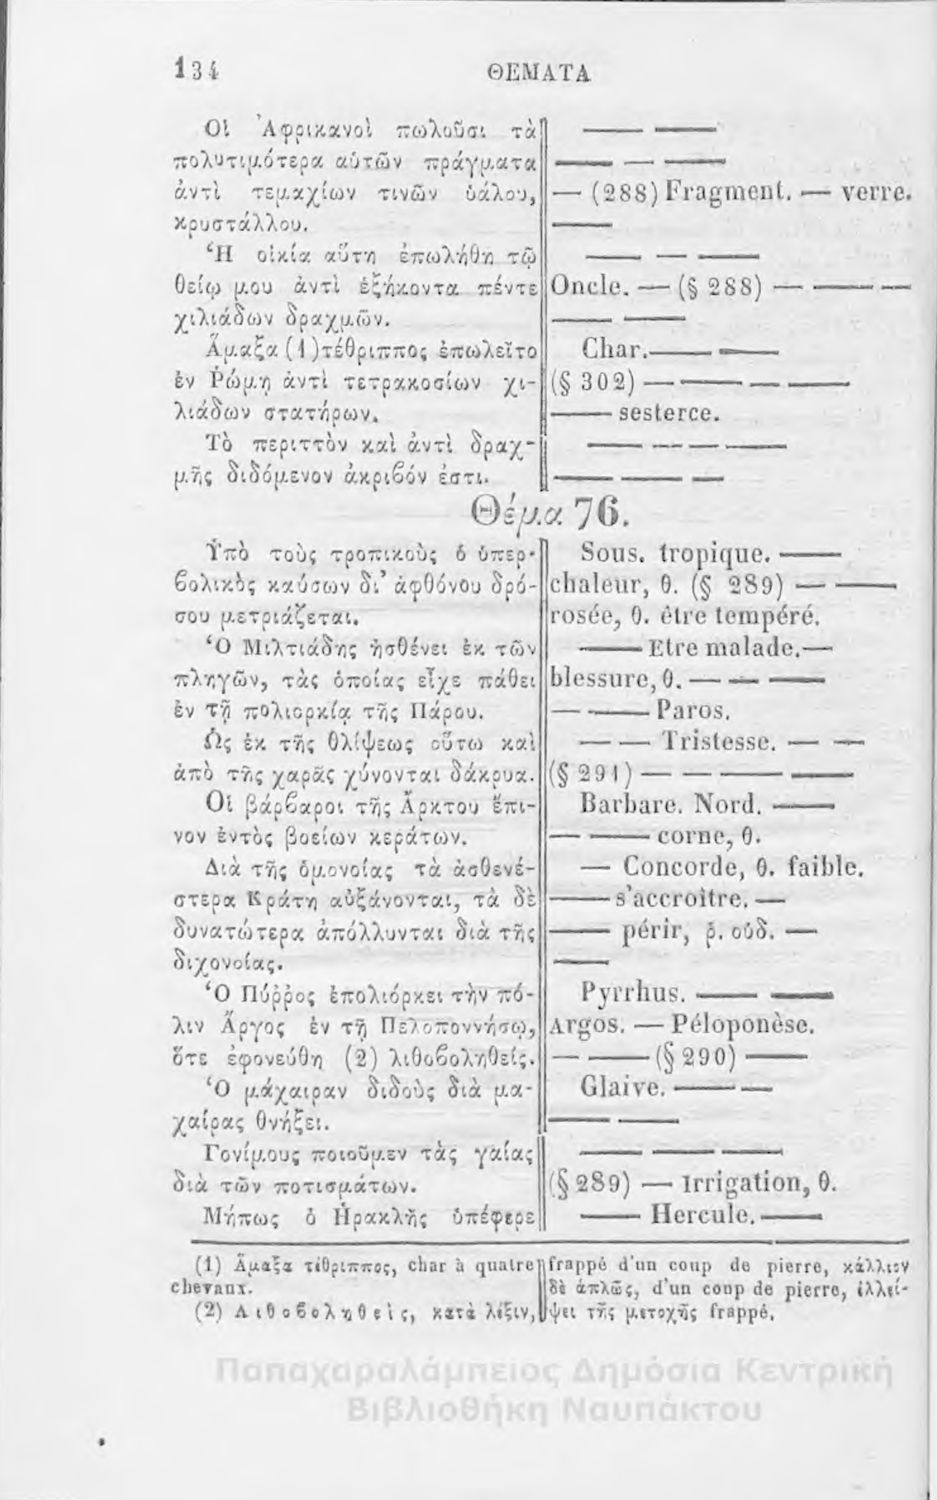 134 ΘΕΜΑΤΑ
Οἱ Ἀφρικανοὶ πωλοῦσι τὰ
πολυτιμότερα αὑτῶν πράγματα
ἀντὶ τεμαχίων τινῶν ὑάλου, — (288) Fragment. — verre.
κρυστάλλου.
Ἡ οἰκία αὕτη ἐπωλήθη τῷ
θείῳ μου ἀντὶ ἑξήκοντα πέντε Oncle. — (§ 288) — — —
χιλιάδων δραχμῶν.
Ἅμαξα (1) τέθριππος ἐπωλεῖτο Char. — —
ἐν Ῥώμῃ ἀντὶ τετρακοσίων χι- (§ 302) — — — —
λιάδων στατήρων. — sesterce.
Τὸ περιττὸν καὶ ἀντὶ δραχ-
μῆς διδόμενον ἀκριβόν ἐστι.
Θέμα 76.
Ὑπὸ τοὺς τροπικοὺς ὁ ὑπερ- Sous. tropique. —
βολικὸς καύσων δι’ ἀφθόνου δρό- chaleur, θ. (§ 289) — —
σου μετριάζεται. rosée, θ. être tempéré.
Ὁ Μιλτιάδης ἠσθένει ἐκ τῶν — Etre malade. —
πληγῶν, τὰς ὁποίας εἶχε πάθει blessure, θ. — — —
ἐν τῇ πολιορκίᾳ τῆς Πάρου. — — Paros.
Ὡς ἐκ τῆς θλίψεως οὕτω καὶ — — Tristesse. — —
ἀπὸ τῆς χαρᾶς χύνονται δάκρυα. (§ 291) — — — —
Οἱ βάρβαροι τῆς Ἄρκτου ἔπι- Barbare. Nord. —
νον ἐντὸς βοείων κεράτων. — — corne, θ.
Διὰ τῆς ὁμονοίας τὰ ἀσθενέ- — Concorde, θ. faible.
στερα Κράτη αὐξάνονται, τὰ δὲ — s’accroître. —
δυνατώτερα ἀπόλλυνται διὰ τῆς — périr, ῥ. οὐδ. —
διχονοίας. —
Ὁ Πύῤῥος ἐπολιόρκει τὴν πό- Pyrrhus. — —
λιν Ἄργος ἐν τῇ Πελοποννήσῳ, Argos. — Péloponèse.
ὅτε ἐφονεύθη (2) λιθοβοληθείς. — — (§ 290) —
Ὁ μάχαιραν διδοὺς διὰ μα- Glaive. — —
χαίρας θνήξει. — —
Γονίμους ποιοῦμεν τὰς γαίας — — —
διὰ τῶν ποτισμάτων. (§ 289) — Irrigation, θ.
Μήπως ὁ Ἡρακλῆς ὑπέφερε — Hercule. —
(1) Ἅμαξα τέθριππος, char à quatre
chevaux.
(2) Λιθοβοληθείς, κατὰ λέξιν,
frappé d’un coup de pierre, κάλλιον
δὲ ἁπλῶς, d’un coup de pierre, ἐλλεί-
ψει τῆς μετοχῆς frappé.
Παπαχαραλάμπειος Δημόσια Κεντρική
Βιβλιοθήκη Ναυπάκτου